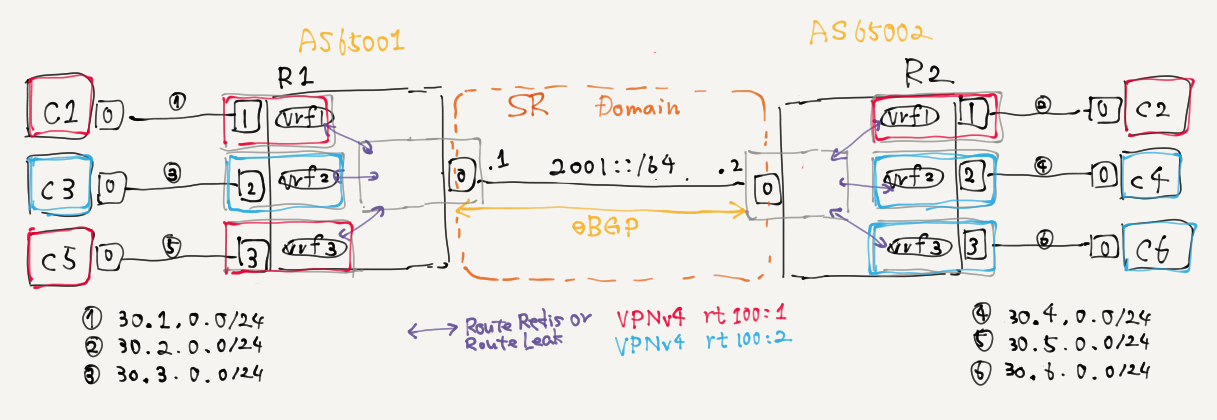 AS65001
AS65002
R1
R2
SR Domain
C1
0
①
1
vrf1
vrf1
1
②
0
C2
C3
0
③
2
vrf2
0
.1
2001::/64
.2
0
vrf2
2
④
0
C4
eBGP
C5
0
⑤
3
vrf3
vrf3
3
⑥
0
C6
① 30.1.0.0/24
② 30.2.0.0/24
③ 30.3.0.0/24
Route Redis or
Route Leak
VPNv4 rt 100:1
VPNv4 rt 100:2
④ 30.4.0.0/24
⑤ 30.5.0.0/24
⑥ 30.6.0.0/24